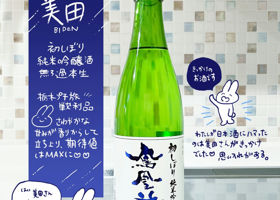 美田
BIDEN
初しぼり
純米吟醸酒
無ろ過本生
栃木
戦利品
さわやかな
甘みが香りからして
立ち上り、期待値
はMAXに♡♡
美田さん
きっかけの
お酒です
わたしが日本酒にハマった
のは美田さんがきっかけ
でした♡思い入れがある。
初しぼり 純米吟
鳳凰美